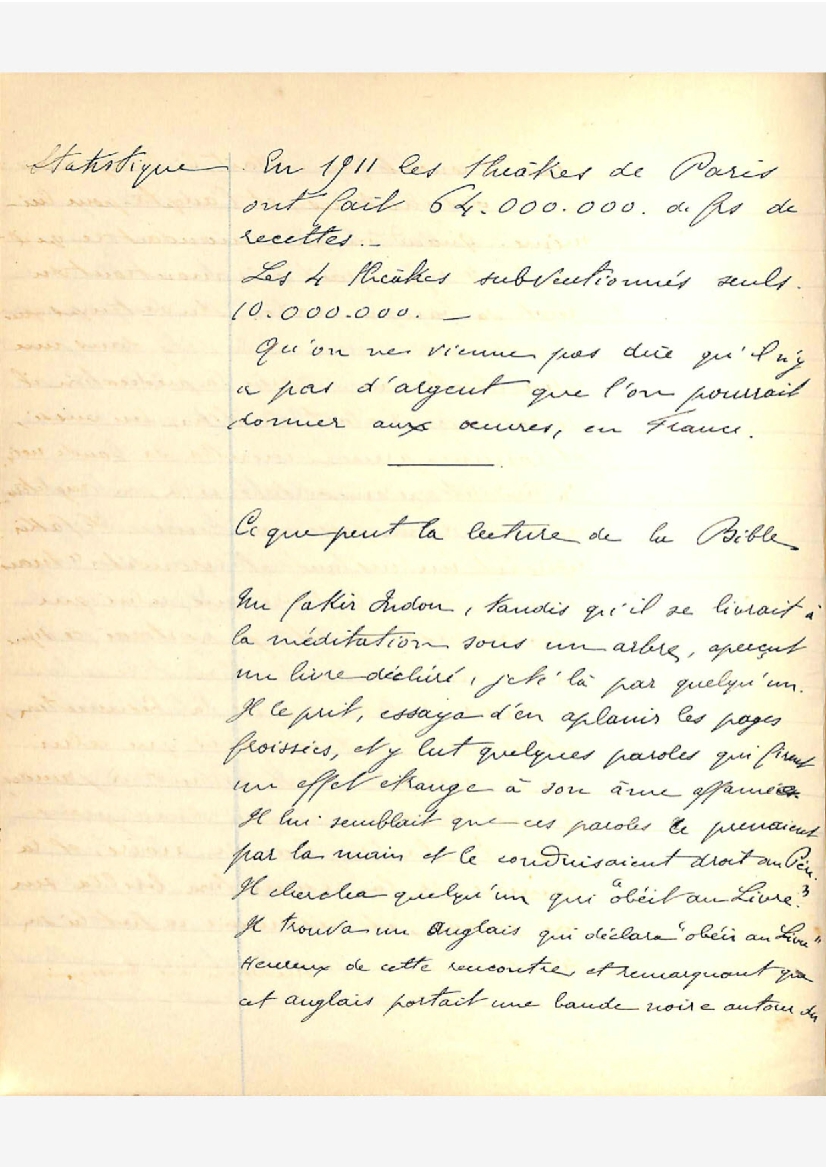 Statistique
En 1911 les théâtres de Paris
ont fait 64.000.000. de frs de
recettes._
Les 4 théâtres subventionnés seuls.
10.000.000. _
Qu'on ne vienne pas dire qu'il n'y
a pas d'argent que l'on pourrait
donner aux œuvres, en France.
Ce que peut la lecture de la Bible
Un fakir Indou, tandis qu'il se livrait à
la méditation sous un arbre, aperçut
un livre déchiré, jeté là par quelqu'un.
Il le prit, essaya d'en aplanir les pages
froissées, et y lut quelques paroles qui firent
un effet étrange à son âme affamée
Il lui semblait que ces paroles le prenaient
par la main et le conduisaient droit au Père.
Il chercha quelqu'un qui "obéit au Livre".
Il trouva un Anglais qui déclara "obéir au Livre"
Heureux de cette rencontre et remarquant que
cet anglais portait une bande noire autour du